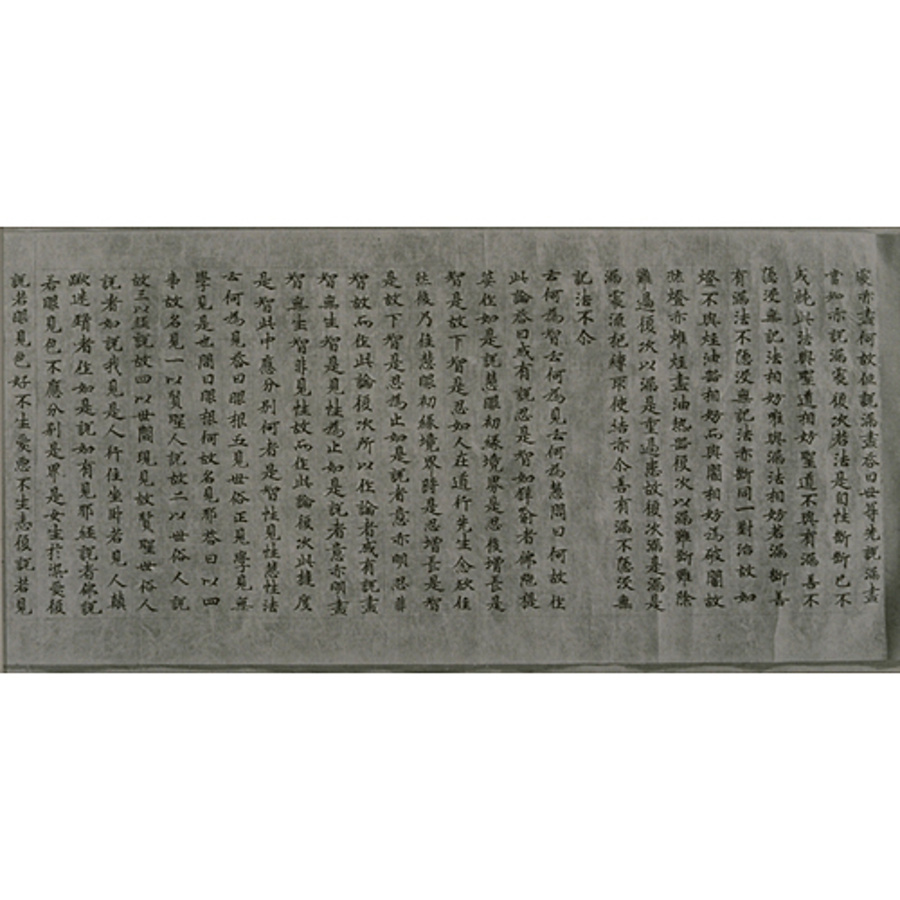 處亦盡何故但說漏盡答曰世尊先說漏盡
當知亦說漏處復次若法是自性斷斷已不
成就此法與聖道相妨聖道不與有漏善不
隱沒無記法相妨唯與漏法相妨若漏斷善
有漏法不隱沒無記法亦斷同一對治故如
燈不與炷油器相妨而與闇相妨為破闇故
然燈亦燋炷盡油熱器復次以漏難斷難除
難過復次以漏是重過患故復次漏是漏
漏處流枙縛垢使結亦尒善有漏不隱沒無
記法不尒
云何為智云何為見云何為慧問曰何故作
此論答曰或有說忍是智如譬喻者佛陀提
婆作如是說慧眼初緣境界是忍後增長是
智是故下智是忍如人在道行先生念欲住
然後乃住慧眼初緣境界時是忍增長是智
是故下智是忍為止如是說者意亦明忍非
智故而作此論復次所以作論者或有說盡
智無生智是見性為止如是說者意亦明盡
智無生智非見性故而作此論復次此揵度
是智此中應分別何者是智性見性慧性法
云何為見答曰眼根五見世俗正見學見無
學見是也問曰眼根何故名見耶答曰以四
事故名見一以賢聖人說故二以世俗人說
故三以經說故四以世間現見故賢聖世俗人
說者如說我見是人行住坐臥若見人顛
蹶迷錯者作如是說如有見耶經說者佛說
若眼見色不應分別是男是女生於染愛復
說若眼見色好不生愛惡不生恚復說若見